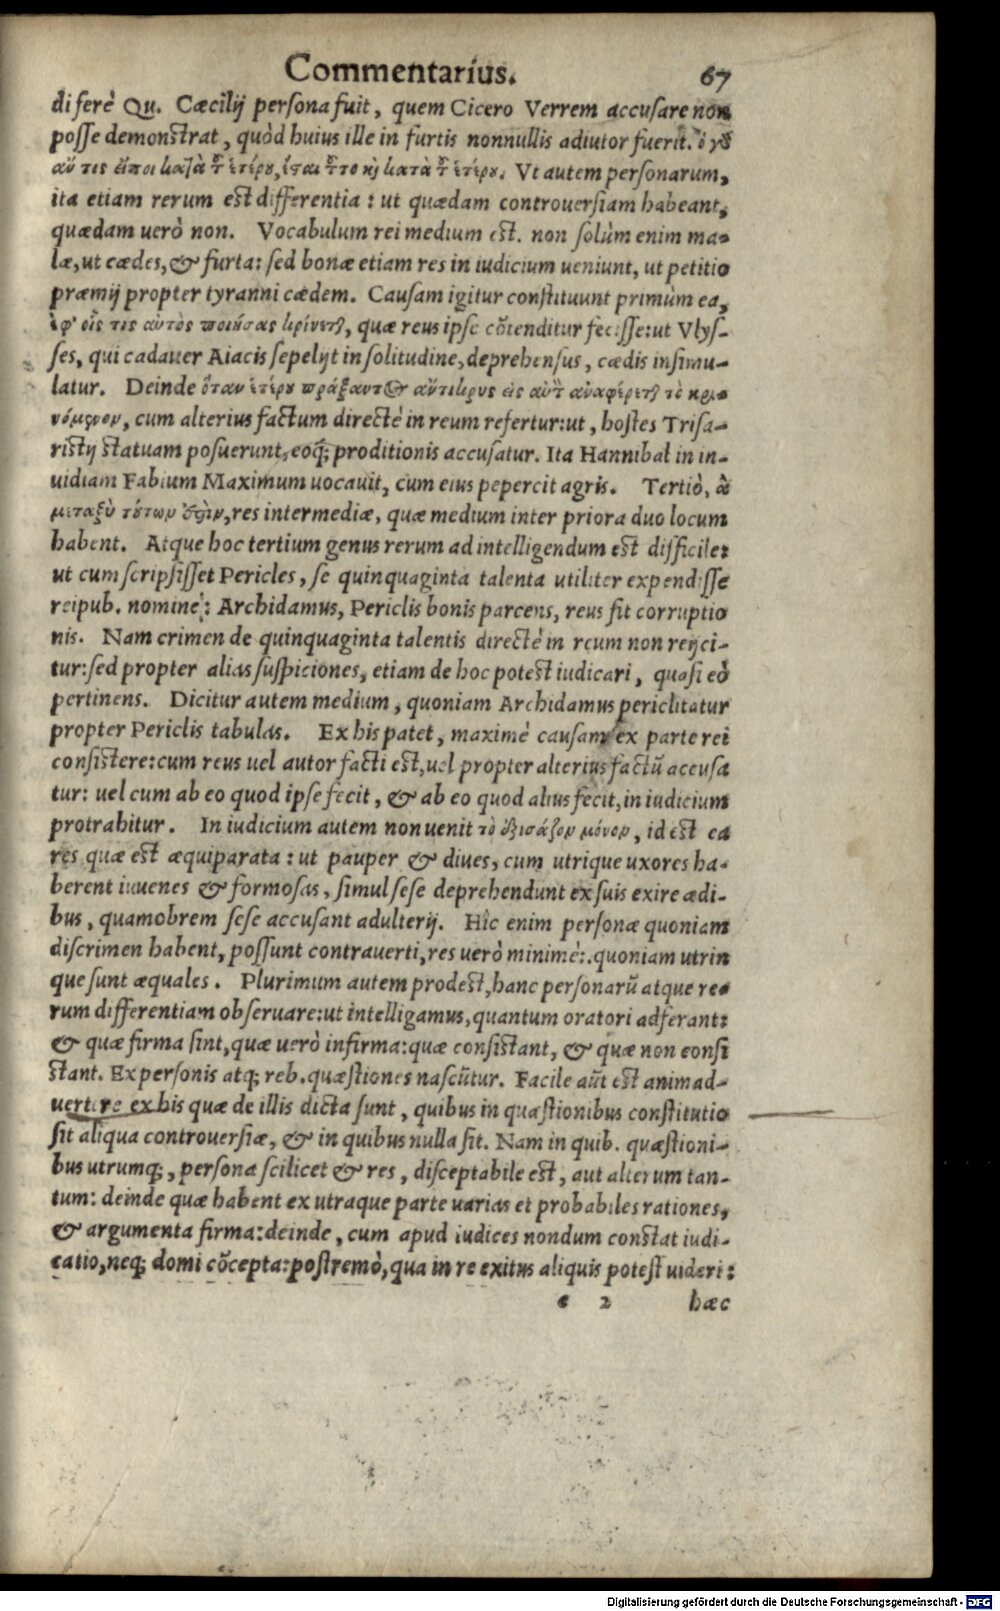 Commentarius. 67
di ferè Qu. Cæcilij persona fuit, quem Cicero Verrem accusare non
posse demonstrat, quòd huius ille in furtis nonnullis adiutor fuerit. ὁ γὸ
ἄν τις εἴποι κατὰ τ̃ ἑτέρου, ἔσαι τ̃το κὶ κατὰ τ̃ ἑτέρου. Vt autem personarum,
ita etiam rerum est differentia: ut quædam controuersiam habeant,
quædam uerò non. Vocabulum rei medium est. non solùm enim ma-
læ, ut cædes, & furta: sed bonæ etiam res in iudicium ueniunt, ut petitio
præmij propter tyranni cædem. Causam igitur constituunt primùm ea,
ἐφ' οἷς τις αὐτὸς ποιήσας κρίνετ, quæ reus ipse cõtenditur fecisse: ut Vlys-
ses, qui cadauer Aiacis sepelijt in solitudine, deprehensus, cædis insimu-
latur. Deinde ὅταν ἑτέρου πράξαντος ἄντικρυς εἰς αὐτ αναφέρετ τὸ κρι-
νόμενον, cum alterius factum directè in reum refertur: ut, hostes Trisa-
ristij statuam posuerunt, eoq́; proditionis accusatur. Ita Hannibal in in-
uidiam Fabium Maximum uocauit, cum eius pepercit agris. Tertiò, ἃ
μεταξὺ τούτων ἐστὶν, res intermediæ, quæ medium inter priora duo locum
habent. Atque hoc tertium genus rerum ad intelligendum est difficile:
ut cum scripsisset Pericles, se quinquaginta talenta utiliter expendisse
reipub. nominè: Archidamus, Periclis bonis parcens, reus fit corruptio
nis. Nam crimen de quinquaginta talentis directè in reum non reijci-
tur: sed propter alias suspiciones, etiam de hoc potest iudicari, quasi eò
pertinens. Dicitur autem medium, quoniam Archidamus periclitatur
propter Periclis tabulas. Ex his patet, maximè causam ex parte rei
consistere: cum reus uel autor facti est, uel propter alterius factũ accusa
tur: uel cum ab eo quod ipse fecit, & ab eo quod alius fecit, in iudicium
protrahitur. In iudicium autem non uenit τὸ ἐξισάζον μόνον, id est ea
res quæ est æquiparata: ut pauper & diues, cum utrique uxores ha-
berent iuuenes & formosas, simul sese deprehendunt ex suis exire ædi-
bus, quamobrem sese accusant adulterij. Hîc enim personæ quoniam
discrimen habent, possunt contrauerti, res uerò minimè: quoniam utrin
que sunt æquales. Plurimum autem prodest, hanc personarũ atque re-
rum differentiam obseruare: ut intelligamus, quantum oratori adferant:
& quæ firma sint, quæ uerò infirma: quæ consistant, & quæ non consi
stant. Ex personis atq; reb. quæstiones nascũtur. Facile aũt est animad-
uertere ex his quæ de illis dicta sunt, quibus in quæstionibus constitutio
sit aliqua controuersiæ, & in quibus nulla sit. Nam in quib. quæstioni-
bus utrumq;, persona scilicet & res, disceptabile est, aut alterum tan-
tum: deinde quæ habent ex utraque parte uarias et probabiles rationes,
& argumenta firma: deinde, cum apud iudices nondum constat iudi-
catio, neq; domi cõcepta: postremò, qua in re exitus aliquis potest uideri:
e 2 hæc
Digitalisierung gefördert durch die Deutsche Forschungsgemeinschaft - DFG